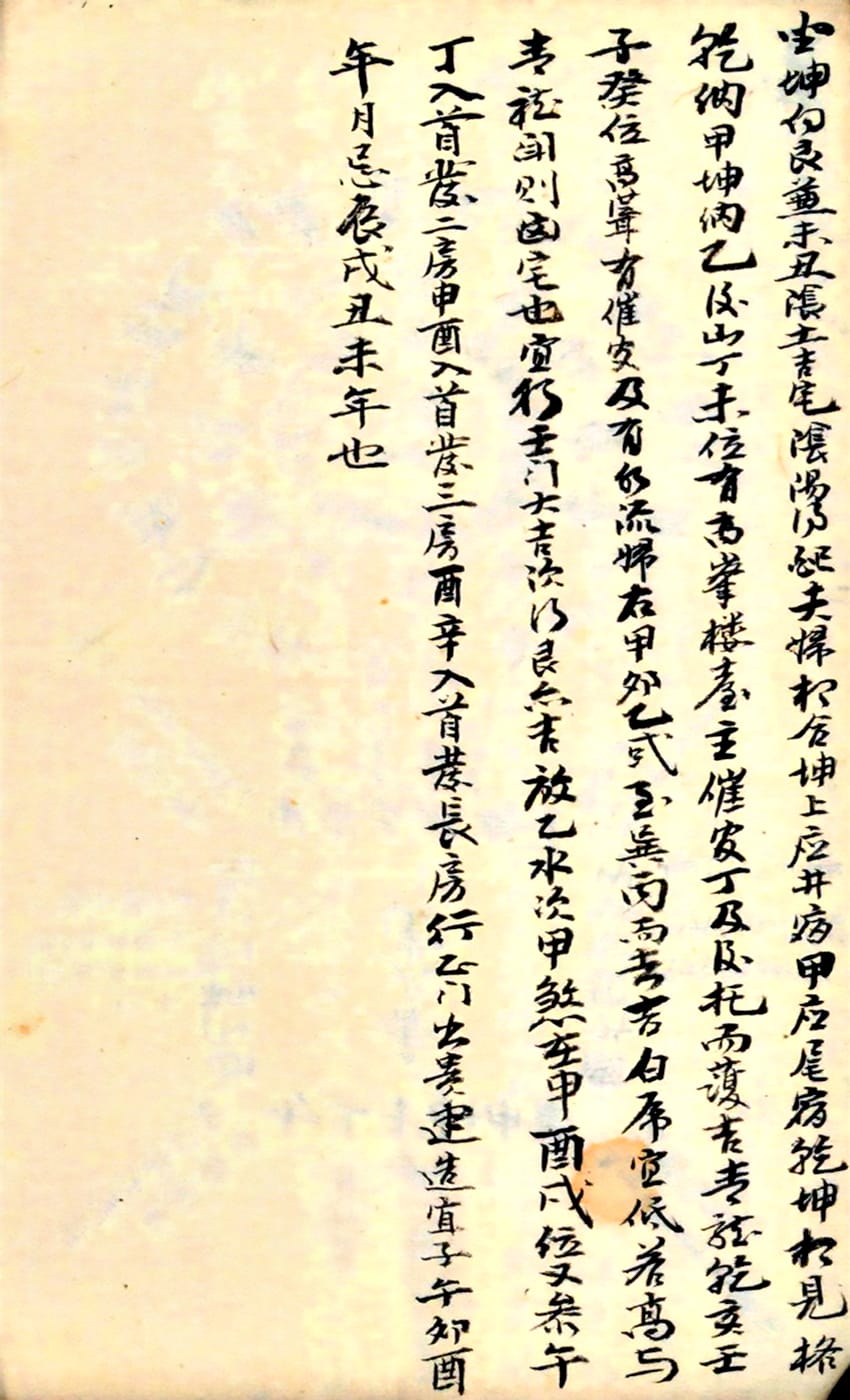 坐坤向艮兼未丑陰土吉宅陰陽得配夫婦相合坤上应井宿甲应尾宿乾坤相見格
乾納甲坤納乙後山丁未位有高峯楼臺主催官丁及後托而護吉青龍乾亥壬
子癸位高聳有催官及有水流归右甲卯乙或至巽丙而去吉白虎宜低若高与
青龍闭則凶宅也宜行壬门大吉次行艮亦吉放乙水次甲煞在申酉戌位又叅午
丁入首發二房申酉入首發三房酉辛入首發長房行乙门出貴建造宜子午卯酉
年月忌辰戌丑未年也